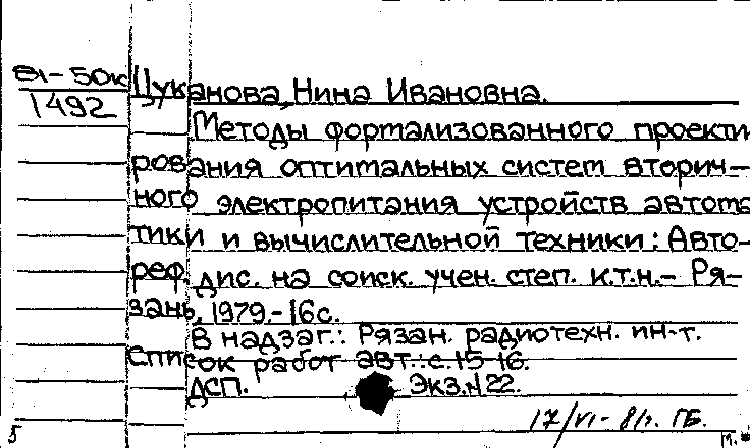 81-50к Цуканова, Нина Ивановна.
1492
Методы формализованного проекти
рования оптимальных систем вторич-
ного электропитания устройств автома
тики и вычислительной техники: Авто-
реф. дис. на соиск. учен. степ. к.т.н.- Ря-
зань, 1979.-16с.
В надзаг.: Рязан. радиотехн. ин-т.
Список работ авт.: с.15-16.
ДСП. Экз.№22.
17/VI-81г. ГБ.
5